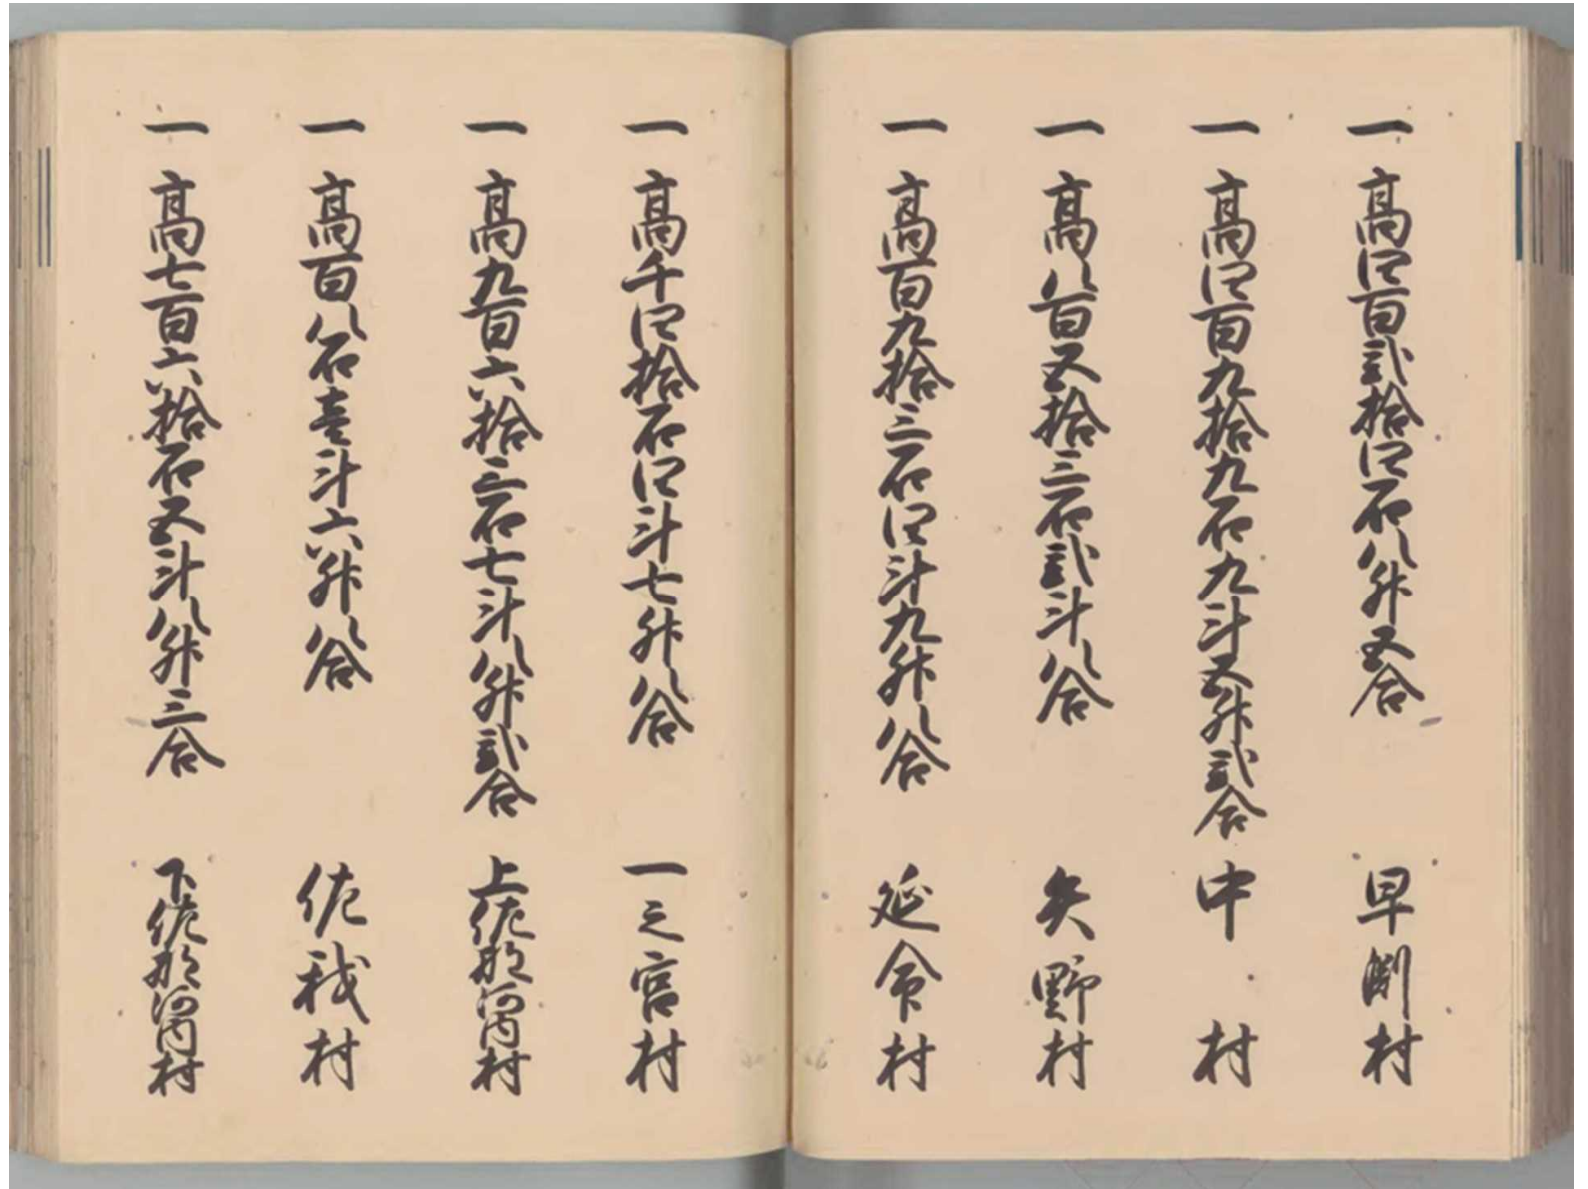 一高四百弐拾四石八升五合 早渕村
一高四百九拾九石九斗五升弐合 中村
一高八百五拾三石弐斗八合 矢野村
一高百九拾三石四斗九升八合 延命村
一高千四拾石四斗七升八合 一之宮村
一高九百六拾三石七斗八升弐合 上佐那河内村
一高百八石壱斗六升八合 佐我村
一高七百六拾石五斗八升三合 下佐那河内村